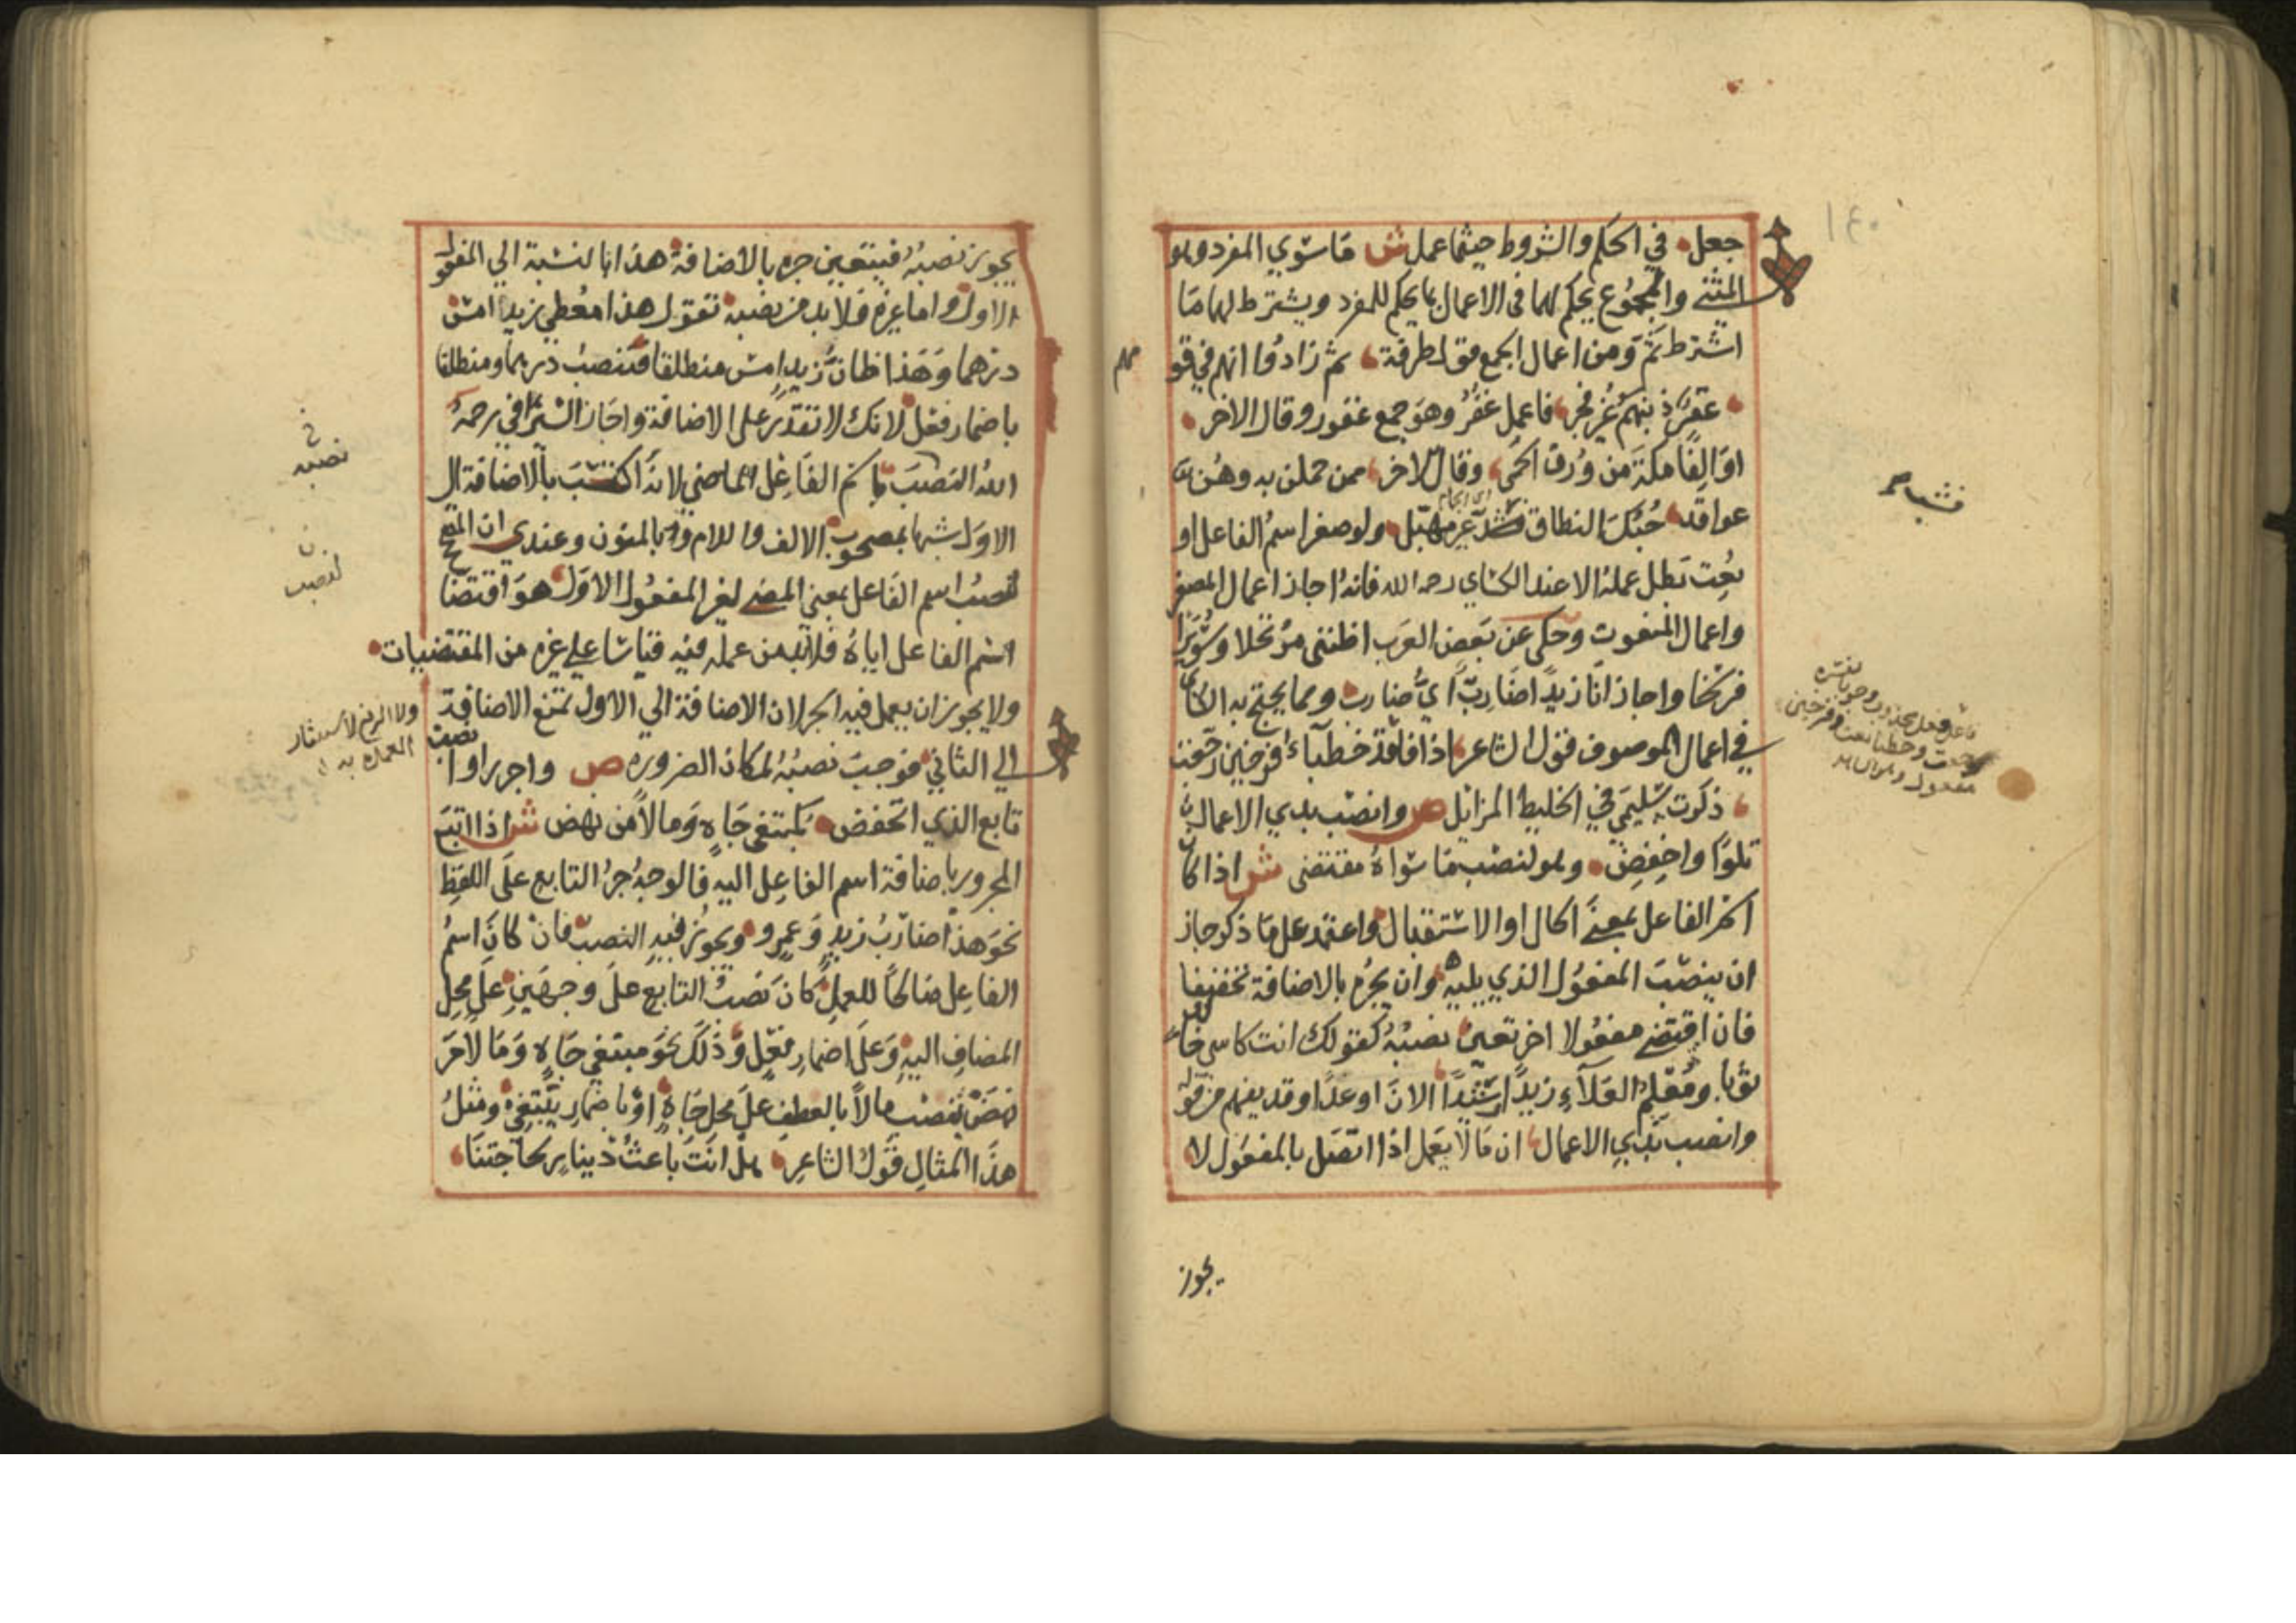 جعل في الحكم والشروط حيثما عمل ش ما سوي المفرد وهو
المثني والمجموع يحكم لهما في الاعمال بما يحكم للمفرد ويشترط لهما ما
اشترط ثم ومن اعمال الجمع قول طرفة ثم زادوا انهم في قو
مهم
غفر ذنبهم غير فخر فاعمل غفر وهو جمع غفور وقال الاخر
اوالفا مكة من ورق الحمي وقال الاخر ممن حملن به وهن
عواقد حبك النطاق فشب غير مهبل ولو صغر اسم الفاعل او
نعت بطل عمله الا عند الكساي رحمه الله فانه اجاز اعمال المصغر
واعمال المنعوت وحكي عن بعض العرب اظنني مرتحلا وسويرا
فرسخا واجاز انا زيدا ضارب اي ضارب ومما يحتج به الكساي
في اعمال الموصوف قول الشاعر اذا فاقد خطباء فرخين رجعت
ذكرت سليمي في الخليط المزايل ص وانصب بذي الاعمال
تلوا واخفض وهو لنصب ما سواه مقتضى ش اذا كان
اسم الفاعل بمعني الحال او الاستقبال واعتمد على ما ذكر جاز
ان ينصب المفعول الذي يليه وان يجره بالاضافة تخفيفا
فان اقتضي مفعولا اخر تعين نصبه كقولك انت كاسي خالد
ثوبا ومعلم العلاء زيدا رشيدا الان او غدا وقد يفهم من قوله
وانصب بذي الاعمال ان ما لا يعمل اذا اتصل بالمفعول لا
يجوز
يجوز نصبه فيتعين جره بالاضافة هذا بالنسبة الي المفعول
الاول واما غيره فلا بد من نصبه تقول هذا معطي زيد امس
درهما وهذا ظان زيد امس منطلقا فتنصب درهما ومنطلقا
باضمار فعل لانك لا تقدر على الاضافة واجاز السيرافي رحمه
الله النصب باسم الفاعل الماضي لانه اكتسب بالاضافة الي
الاول شبها بمصحوب الالف واللام وبالمنون وعندي ان
لنصب اسم الفاعل بمعني المضي لغير المفعول الاول هو اقتضا
اسم الفاعل اياه فلا بد من عمله فيه قياسا علي غيره من المقتضيات
ولا يجوز ان يعمل فيه الجر لان الاضافة الي الاول تمنع الاضافة
الي الثاني فوجب نصبه لمكان الضروره ص واجرر او انصب
تابع الذي انخفض كمبتغي جاه ومالا من نهض ش اذا اتبع
المجرور باضافة اسم الفاعل اليه فالوجه جر التابع على اللفظ
نحو هذا ضارب زيد وعمرو ويجوز فيه النصب فان كان اسم
الفاعل صالحا للعمل كان نصب التابع على وجهين على محل
المضاف اليه وعلى اضمار فعل وذلك نحو مبتغي جاه ومالا من
نهض تنصب مالا بالعطف على محل جاه او باضمار يبتغي ومثل
هذا المثال قول الشاعر هل انت باعث دينار لحاجتنا
نصبه
لنصب